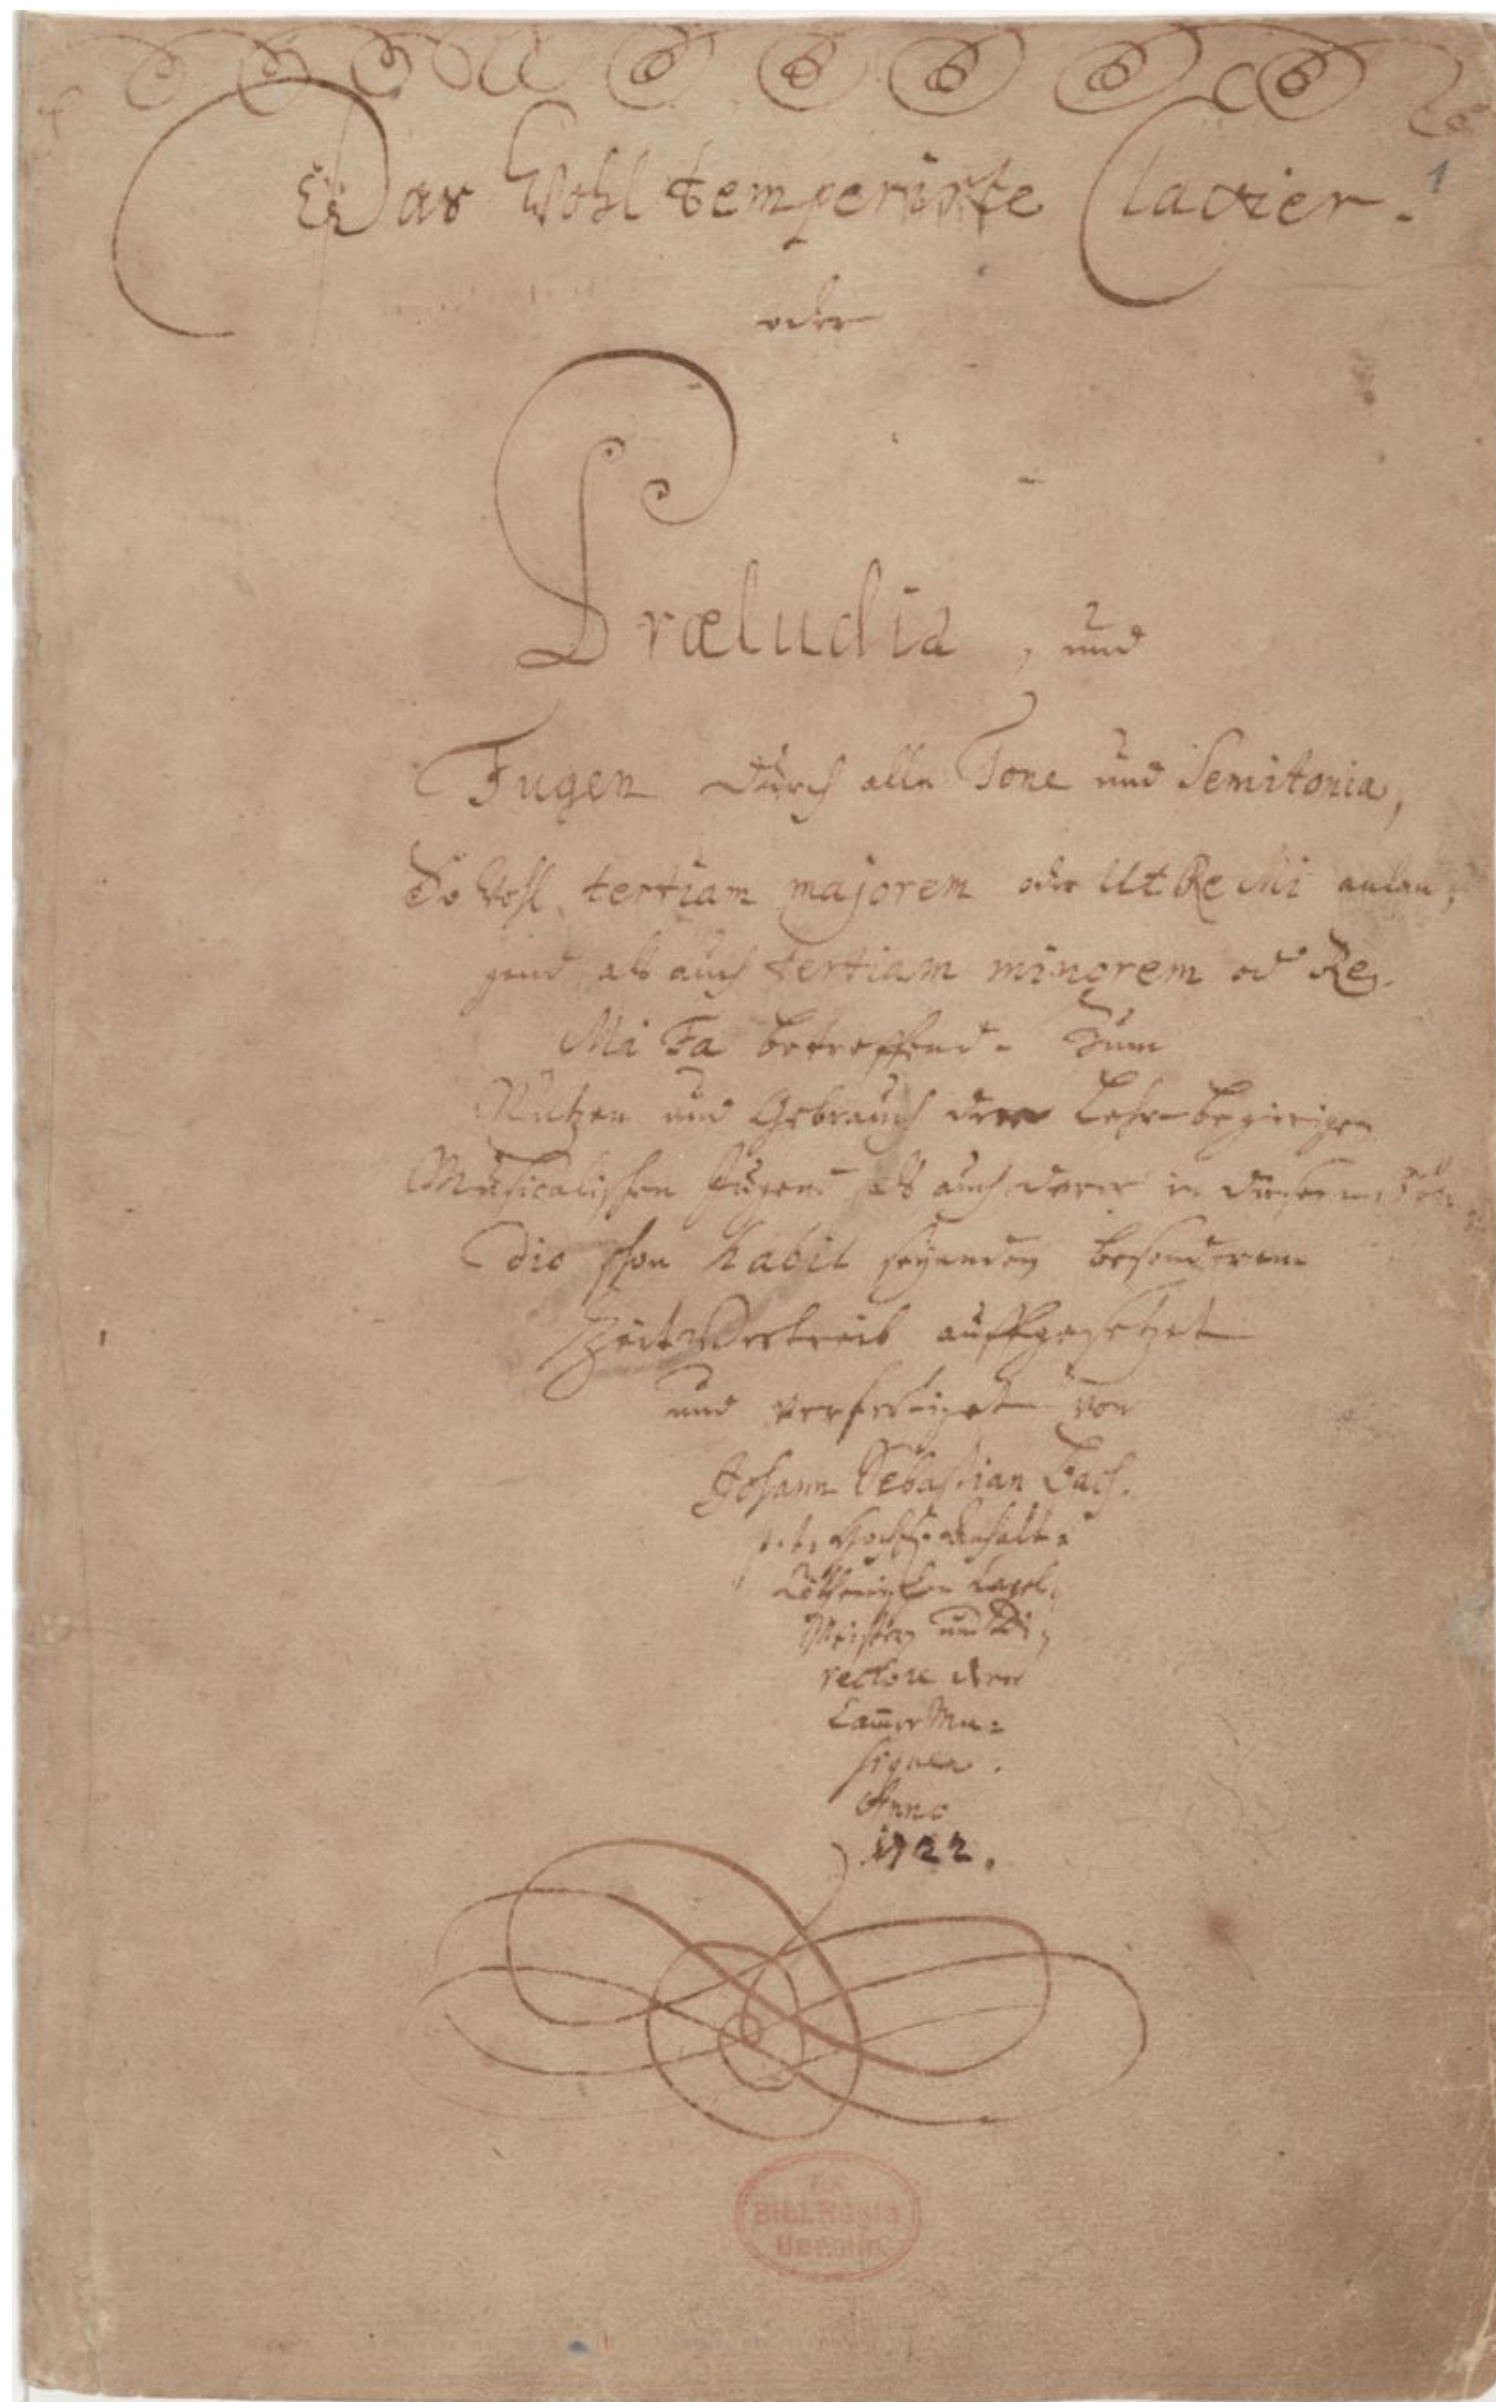 Das Wohltemperirte Clavier.
1
oder
Præludia, und
Fugen durch alle Tone und Semitonia,
So wohl tertiam majorem oder Ut Re Mi anlan,
gend, als auch tertiam minorem od Re
Mi Fa betreffend. Zum
Nutzen und Gebrauch der Lehr-begierigen
Musicalischen Jugend, als auch derer in diesem stu
dio schon habil seyenden besonderem
ZeitVertreib auffgesetzet
und verfertiget von
Johann Sebastian Bach.
p. t. HochF. Anhalt-
Cöthenischen Capel-
Meistern und Di-
rectore derer
Cam̅er Mu-
siquen.
Anno
1722.
Bibl. Regia
Berolin.